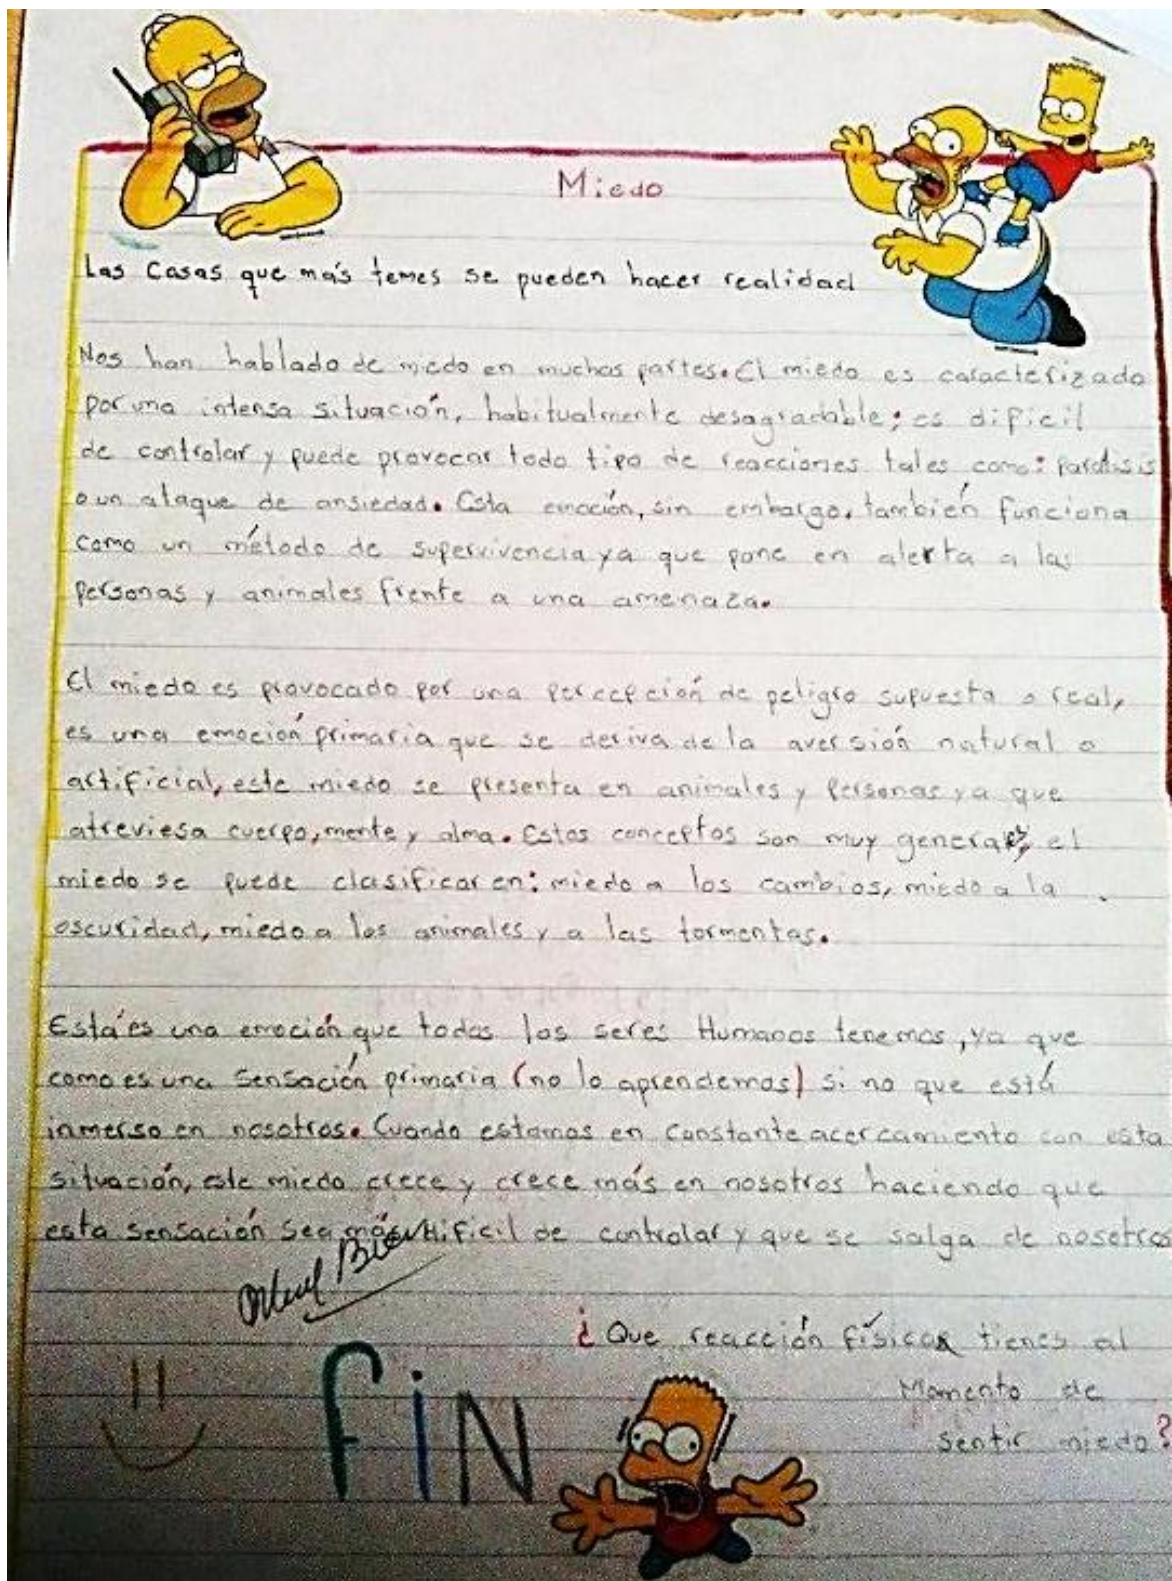 Miedo
Las Cosas que más temes se pueden hacer realidad
Nos han hablado de miedo en muchas partes. El miedo es caracterizado
por una intensa situación, habitualmente desagradable; es dificil
de controlar y puede provocar todo tipo de reacciones tales como: paralisis
o un ataque de ansiedad. Esta emoción, sin embargo, también funciona
como un método de supervivencia ya que pone en alerta a las
personas y animales frente a una amenaza.
El miedo es provocado por una percepción de peligro supuesta o real,
es una emoción primaria que se deriva de la aversión natural o
artificial, este miedo se presenta en animales y personas ya que
atreviesa cuerpo, mente y alma. Estos conceptos son muy generales, el
miedo se puede clasificar en: miedo a los cambios, miedo a la
oscuridad, miedo a los animales y a las tormentas.
Está es una emoción que todos los seres Humanos tenemos, ya que
como es una sensación primaria (no lo aprendemos) si no que está
inmerso en nosotros. Cuando estamos en constante acercamiento con esta
situación, este miedo crece y crece más en nosotros haciendo que
esta sensación sea más dificil de controlar y que se salga de nosotros
¿Que reacción física tienes al
Momento de
sentir miedo?
FiN